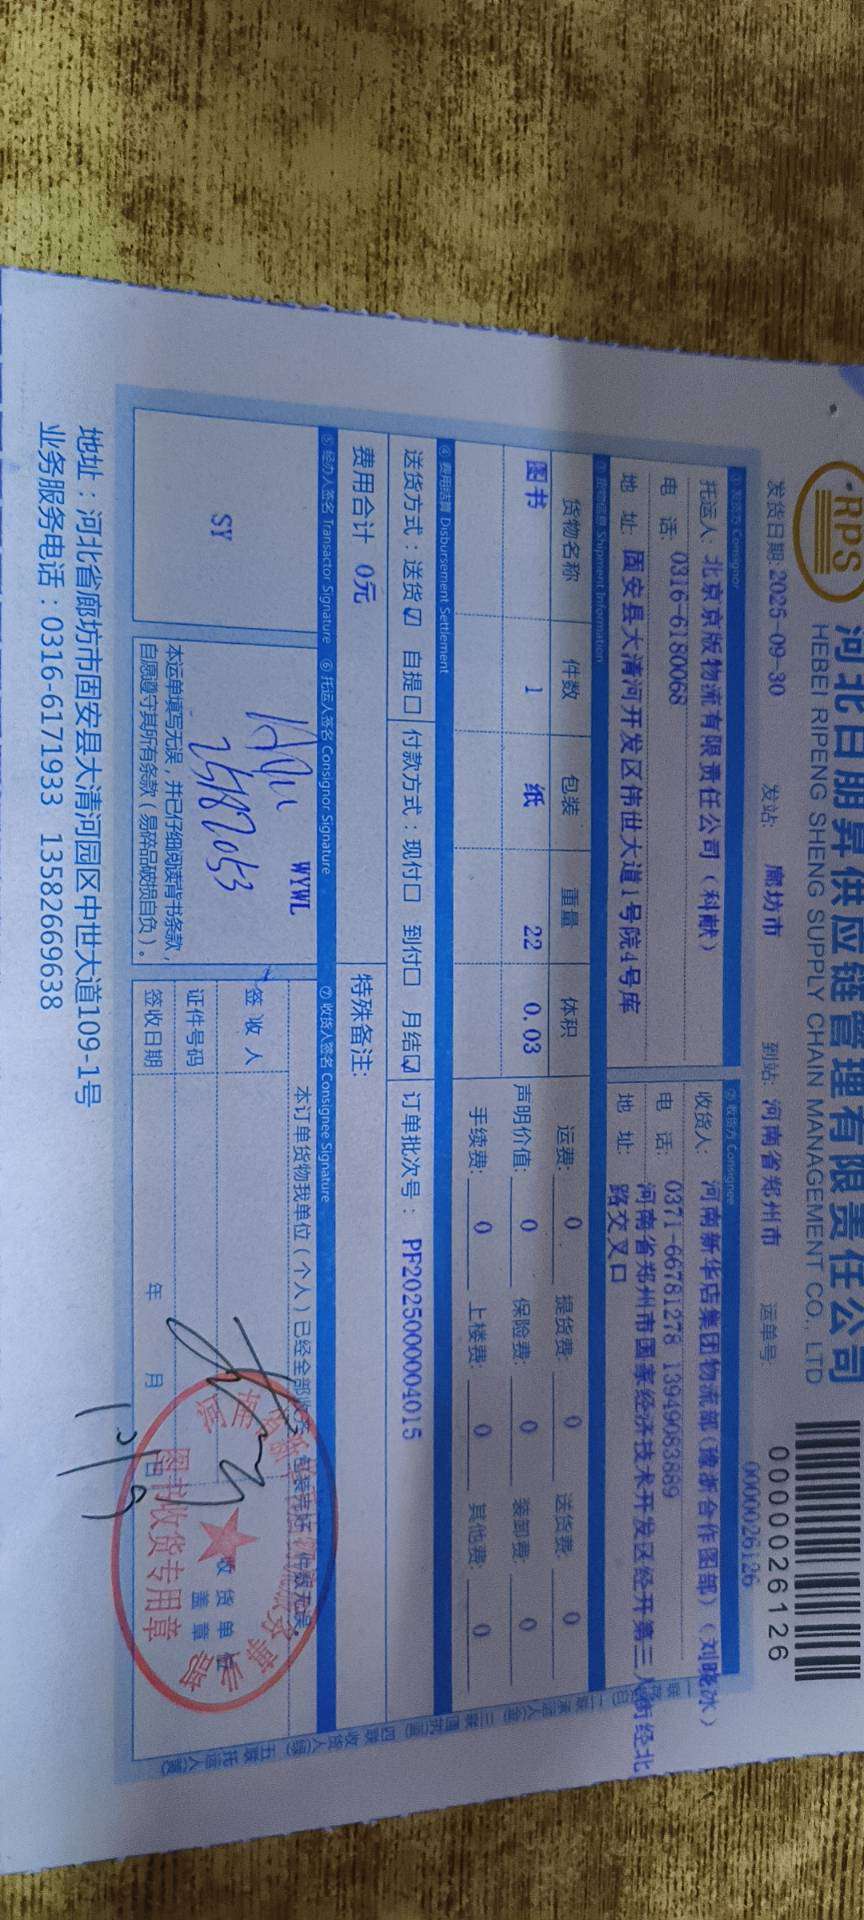 RPS
河北日朋昇供应链管理有限责任公司
HEBEI RIPENG SHENG SUPPLY CHAIN MANAGEMENT CO., LTD
0000026126
发货日期:2025-09-30 发站: 廊坊市 到站: 河南省郑州市 运单号: 0000026126
① 发货方 Consignor ② 收货方 Consignee
托运人: 北京京版物流有限责任公司(科献) 收货人: 河南新华店集团物流部(豫浙合作图部)(刘晓冰)
电 话: 0316-6180068 电 话: 0371-66781278 13949083889
地 址: 固安县大清河开发区伟世大道1号院4号库 地 址: 河南省郑州市国家经济技术开发区经开第三大街经北
路交叉口
③ 货物信息 Shipment Information
货物名称 件数 包装 重量 体积 运费: 0 提货费: 0 送货费: 0
图书 1 纸 22 0.03 声明价值: 0 保险费: 0 装卸费: 0
手续费: 0 上楼费: 0 其他费: 0
④ 费用结算 Disbursement Settlement
送货方式:送货☑ 自提□ 付款方式:现付□ 到付□ 月结☑ 订单批次号: PF2025000004015
费用合计 0元 特殊备注:
⑤ 经办人签名 Transactor Signature ⑥ 托运人签名 Consignor Signature ⑦ 收货人签名 Consignee Signature
本订单货物我单位(个人)已经全部收齐,包装完好,件数无误。
SY WYWL
签 收 人
收货单位
盖章
证件号码
签收日期 年 月 日
本运单填写无误,并已仔细阅读背书条款,
自愿遵守其所有条款(易碎品破损自负)。
图书收货专用章
地址:河北省廊坊市固安县大清河园区中世大道109-1号
业务服务电话:0316-6171933 13582669638